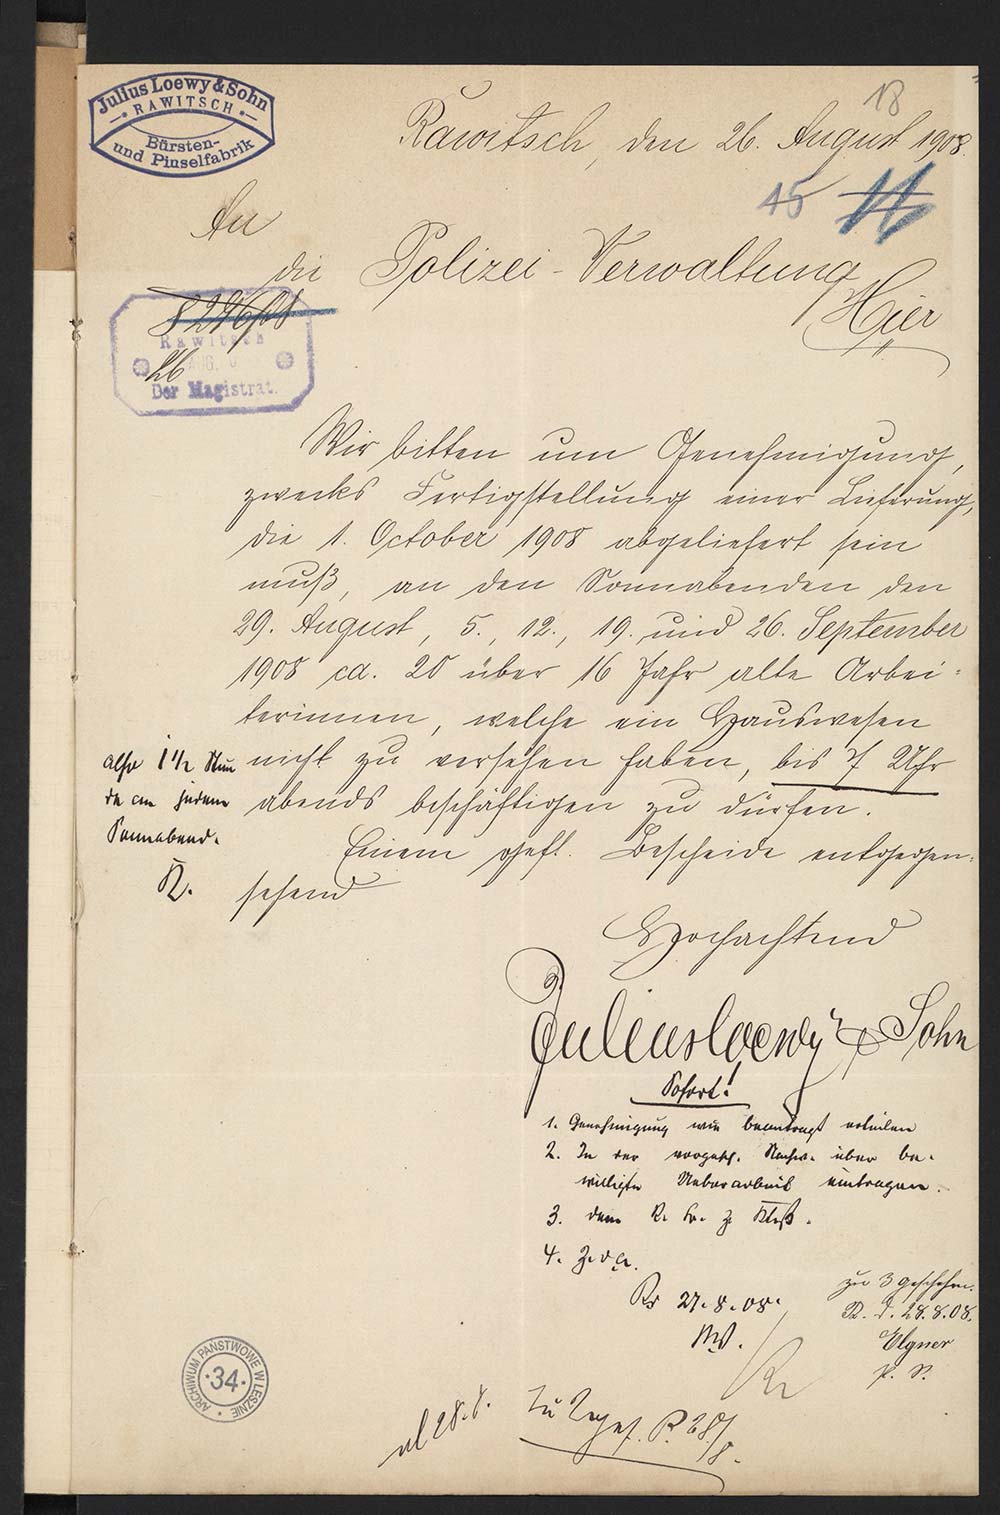 Julius Loewy & Sohn
RAWITSCH
Bürsten-
und Pinselfabrik
18
Rawitsch, den 26. August 1908.
45 16
An
die Polizei-Verwaltung
Hier
8296/08
Rawitsch
26 AUG.
Der Magistrat.
Wir bitten um Genehmigung,
zwecks Fertigstellung einer Lieferung,
die 1. October 1908 abgeliefert sein
muß, an den Sonnabenden den
29. August, 5., 12., 19. und 26. September
1908 ca. 20 über 16 Jahr alte Arbei-
terinnen, welche ein Hauswesen
nicht zu versehen haben, bis 7 Uhr
abends beschäftigen zu dürfen.
also 1 1/2 Stun
de an jedem
Sonnabend.
R.
Einem gefl. Bescheide entgegen-
sehend
Hochachtend
Julius Loewy & Sohn
Sofort!
1. Genehmigung wie beantragt erteilen
2. In der vorgesch. Nachw. über be-
willigte Ueberarbeit eintragen.
3. dem
4. Z. d. A.
R. 27.8.08.
zu 3 geschehen.
R. d. 28.8.08.
Elgner
P. S.
ARCHIWUM PAŃSTWOWE W LESZNIE
34
28.8.
28/8.